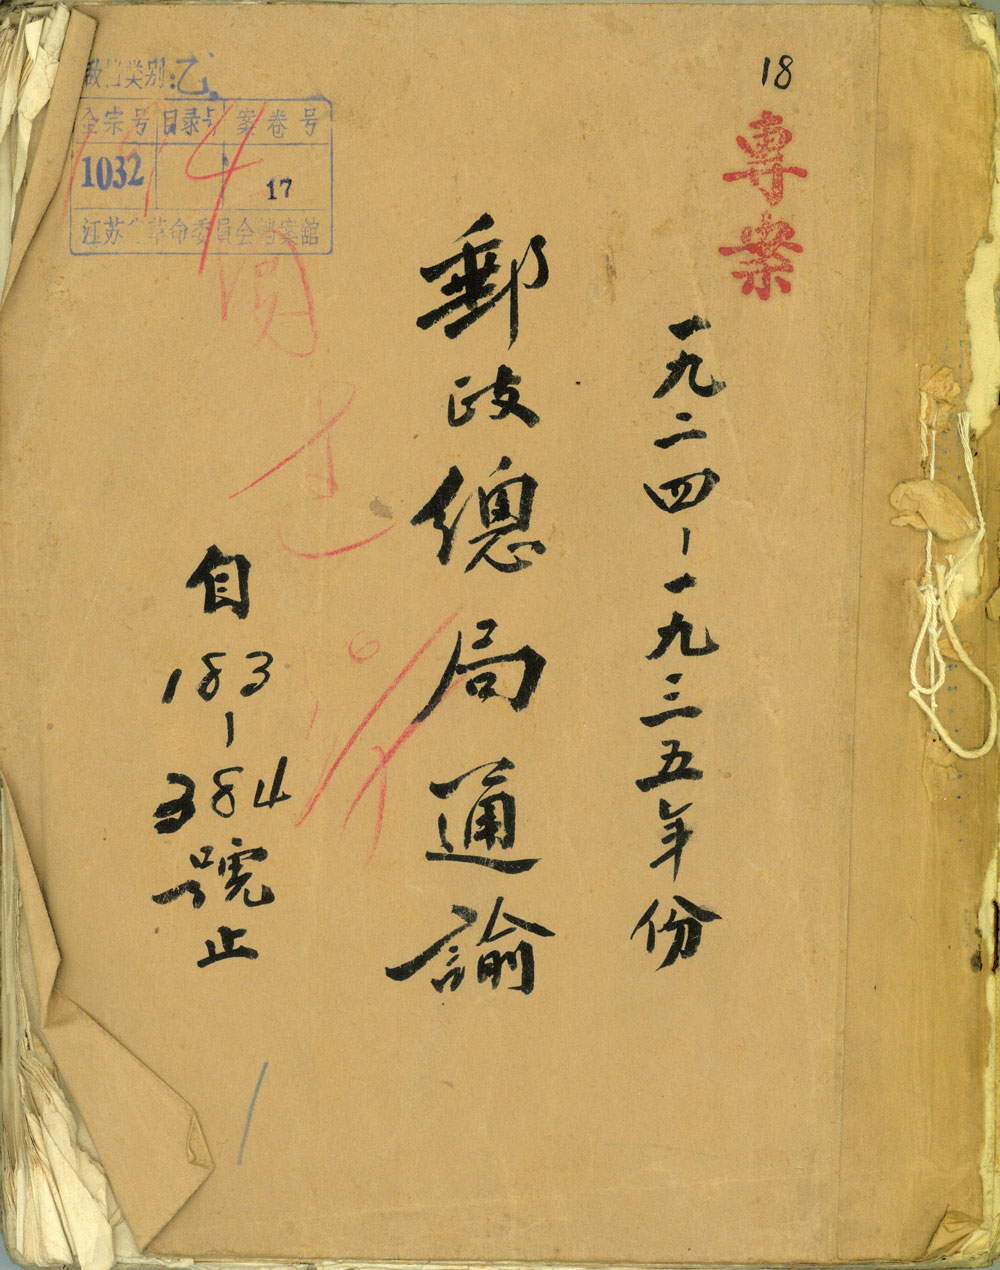 18
專案
一九二四-一九三五年份
郵政總局通諭
自183-384號止
类别:乙
全宗号 目录号 案卷号
1032 17
江苏省革命委員会档案館